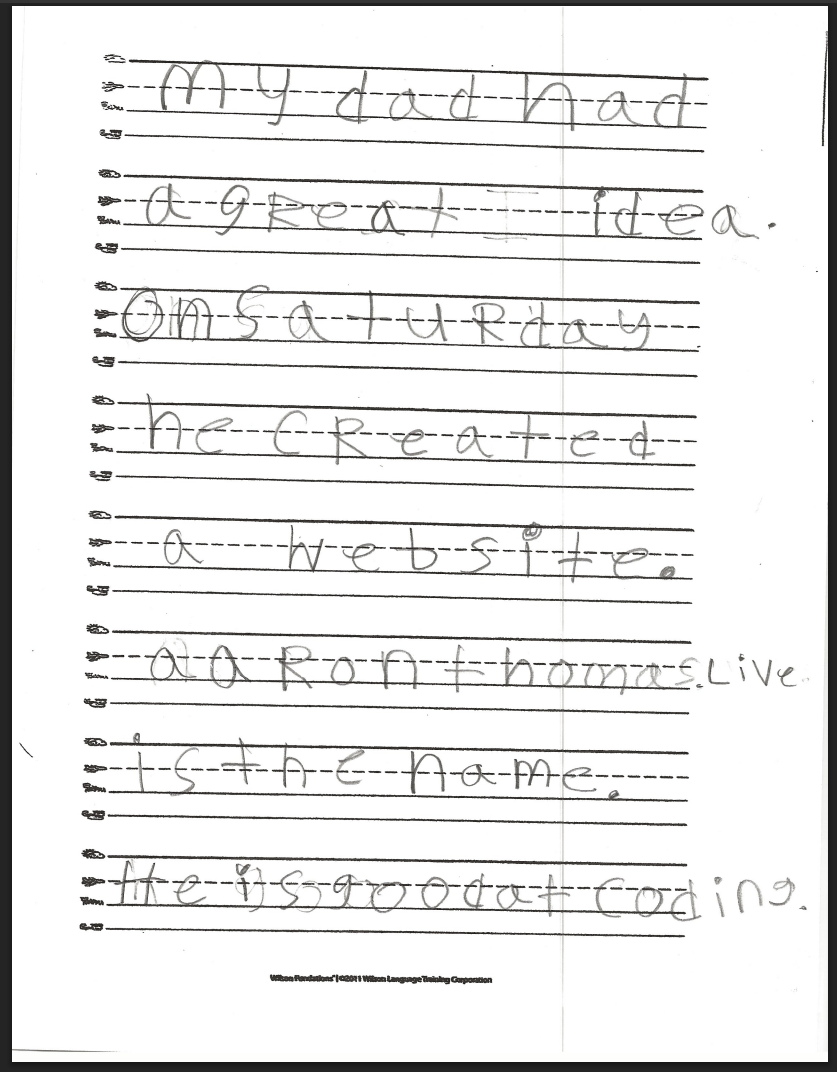 My dad had
a gReat idea.
On SatuRday
he CReated
a website.
aaRon thomas.Live
is the name.
He is good at Coding.
Wilson Fundations® | ©2011 Wilson Language Training Corporation